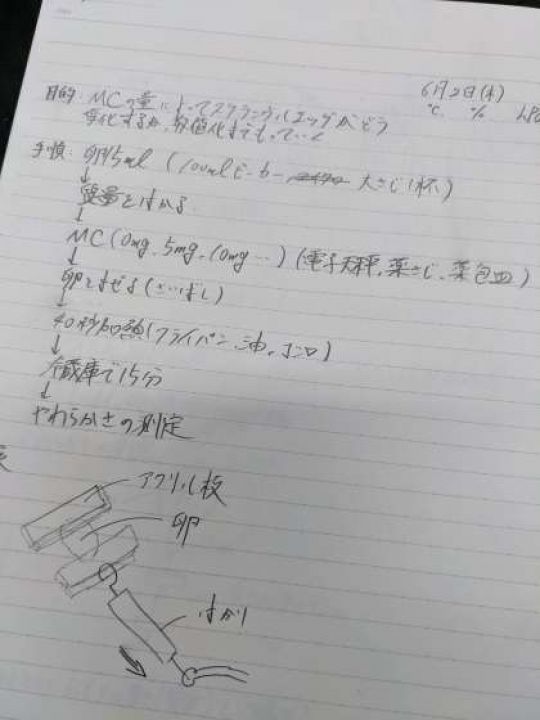 6月2日(木)
℃ % hPa
目的: MCの量によってスクランブルエッグがどう
変化するか、数値化までもっていく
手順: 卵15ml (100mlビーカー 大さじ1杯)
↓
質量をはかる
↓
MC(0mg、5mg、10mg…)(電子天秤、薬さじ、薬包皿)
↓
卵とまぜる(さいばし)
↓
40秒加熱(フライパン、油、コンロ)
↓
冷蔵庫で15分
↓
やわらかさの測定
アクリル板
卵
はかり